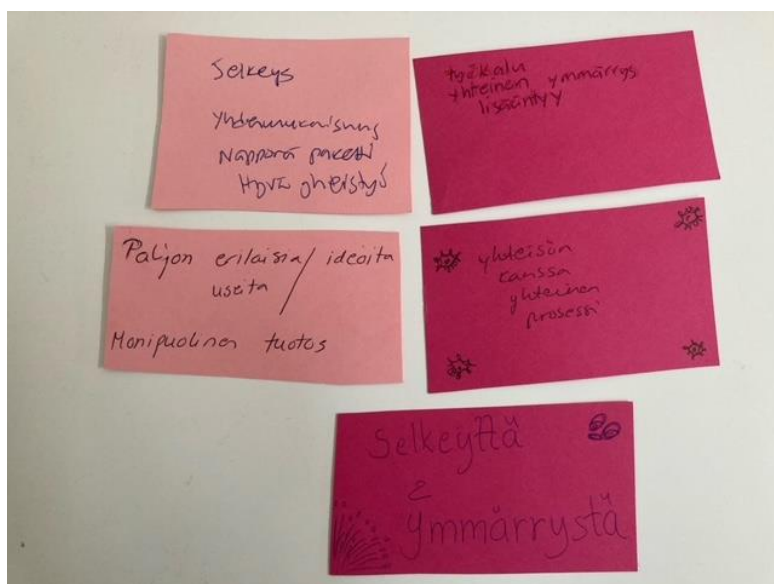 Selkeys
Yhdenmukaisuus
Näppärä paketti
Hyvä yhteistyö
työkalu
yhteinen ymmärrys
lisääntyy
Paljon erilaisia / ideoita
useita
Monipuolinen tuotos
yhteisön
kanssa
yhteinen
prosessi
Selkeyttä
&
ymmärrystä